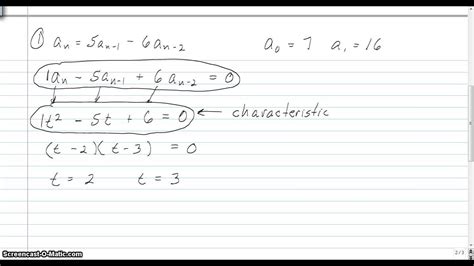 ① aₙ = 5aₙ₋₁ − 6aₙ₋₂ a₀ = 7 a₁ = 16
1aₙ − 5aₙ₋₁ + 6aₙ₋₂ = 0
1t² − 5t + 6 = 0 ← characteristic
(t − 2)(t − 3) = 0
t = 2 t = 3
Screencast-O-Matic.com